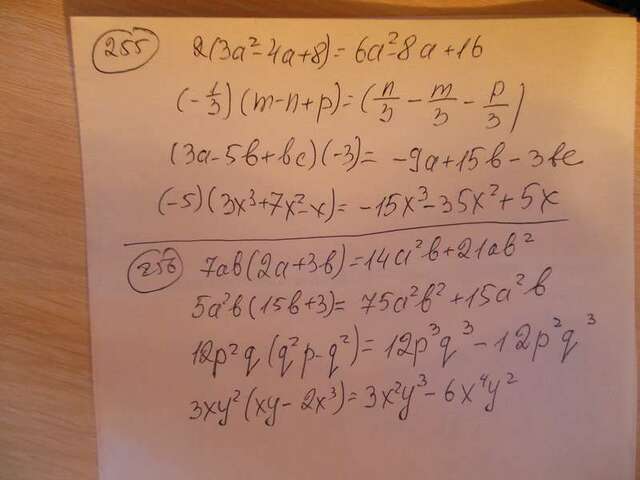 255 2(3a²-4a+8)=6a²-8a+16
(-1/3)(m-n+p)=(n/3-m/3-p/3)
(3a-5b+bc)(-3)=-9a+15b-3bc
(-5)(3x³+7x²-x)=-15x³-35x²+5x
256 7ab(2a+3b)=14a²b+21ab²
5a²b(15b+3)=75a²b²+15a²b
12p²q(q²p-q²)=12p³q³-12p²q³
3xy²(xy-2x³)=3x²y³-6x⁴y²